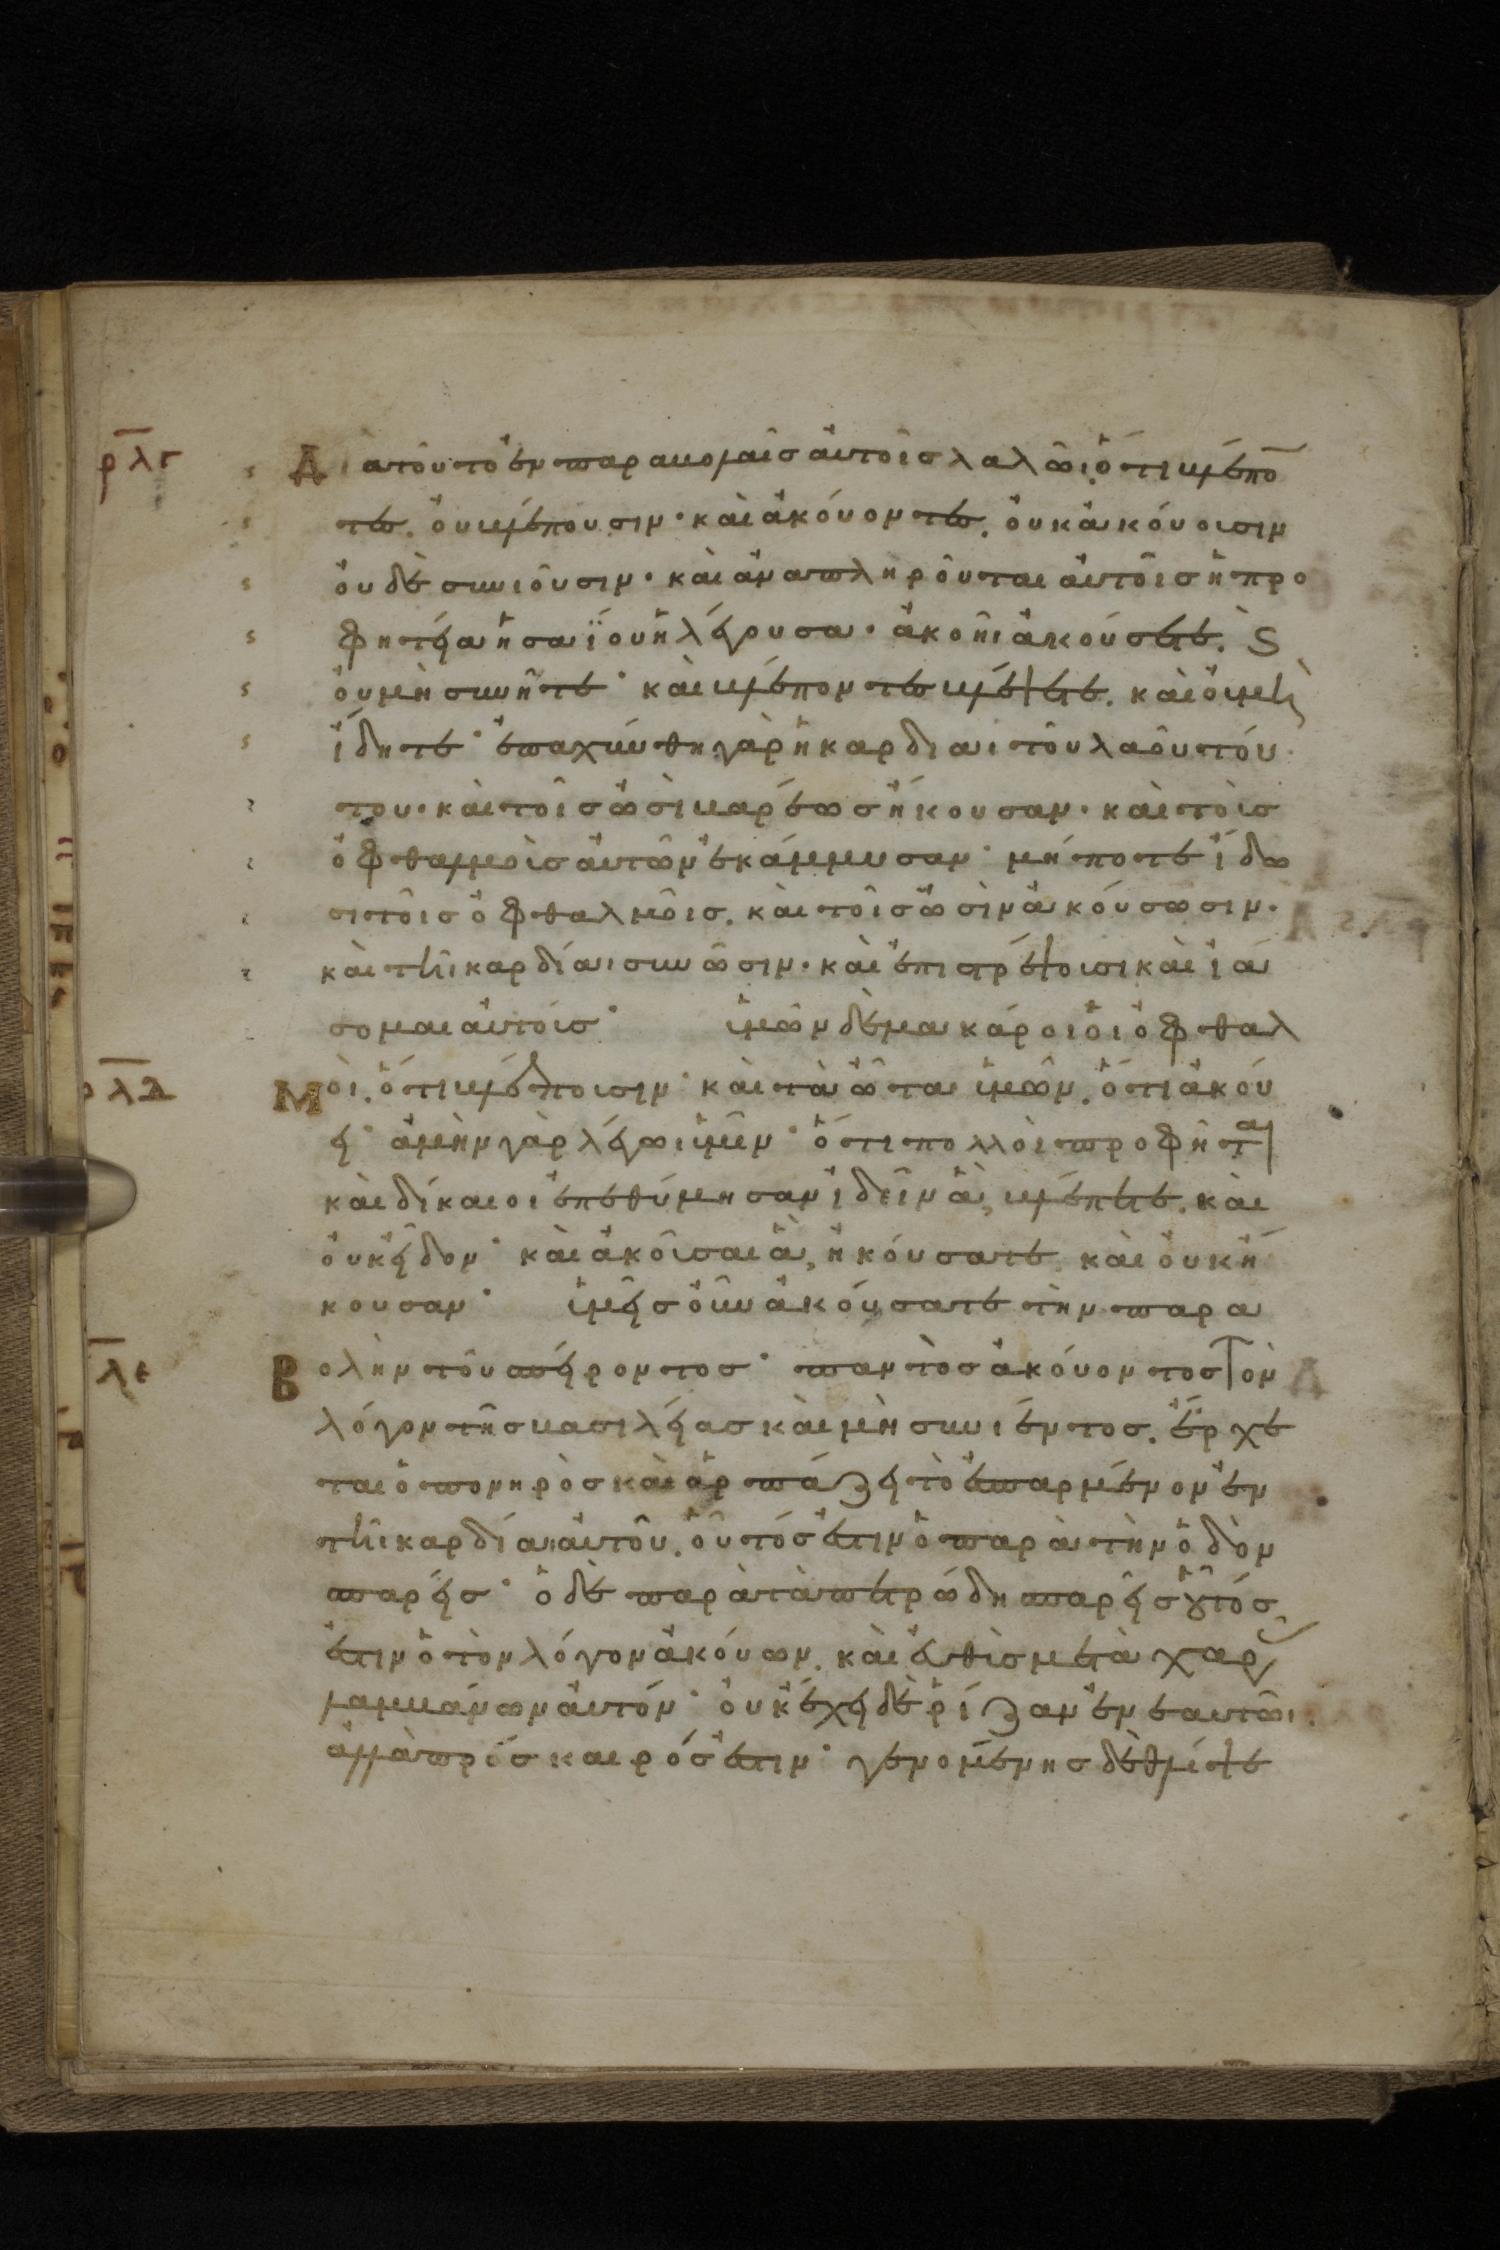 ρλγ Διατοῦτο ἐν παραβολαῖς αὐτοῖς λαλῶι· ὅτι βλέπο
τες, οὐ βλέπουσιν· καὶ ἀκούοντες, οὐκ ἀκούουσιν
οὐδὲ συνιοῦσιν· καὶ ἀναπληροῦται αὐτοῖς ἡ προ
φητεία ἡσαΐου ἡ λέγουσα· ἀκοῆι ἀκούσετε, ϗ
οὐ μὴ συνῆτε· καὶ βλέποντες βλέψετε, καὶ οὐ μὴ
ἴδητε· ἐπαχύνθη γὰρ ἡ καρδία τοῦ λαοῦ τού
του· καὶ τοῖς ὠσὶ βαρέως ἤκουσαν· καὶ τοὺς
ὀφθαλμοὺς αὐτῶν ἐκάμμυσαν· μήποτε ἴδω
σι τοῖς ὀφθαλμοῖς, καὶ τοῖς ὠσὶν ἀκούσωσιν·
καὶ τῆι καρδίαι συνῶσιν· καὶ ἐπιστρέψουσι καὶ ἰά
σομαι αὐτούς· ὑμῶν δὲ μακάριοι οἱ ὀφθαλ
ρλδ Μοὶ, ὅτι βλέπουσιν· καὶ τὰ ὦτα ὑμῶν, ὅτι ἀκού
ει· ἀμὴν γὰρ λέγωι ὑμῖν· ὅτι πολλοὶ προφῆται
καὶ δίκαιοι ἐπεθύμησαν ἰδεῖν ἃ, βλέπετε, καὶ
οὐκ εἶδον· καὶ ἀκοῦσαι ἃ, ἠκούσατε, καὶ οὐκ ἤ
κουσαν· ὑμεῖς οὖν ἀκούσατε τὴν παρα
λε Βολὴν τοῦ σπείροντος· παντὸς ἀκούοντος τὸν
λόγον τῆς βασιλείας καὶ μὴ συνιέντος, ἔρχε
ται ὁ πονηρὸς καὶ ἁρπάζει τὸ ἐσπαρμένον ἐν
τῆι καρδίαι αὐτοῦ, οὗτός ἐστιν ὁ παρὰ τὴν ὁδὸν
σπαρείς· ὁ δὲ παρὰ τὰ πετρώδη σπαρεὶς οὗτός
ἐστιν ὁ τὸν λόγον ἀκούων, καὶ εὐθὺς μετὰ χαρᾶς
λαμβάνων αὐτόν· οὐκ ἔχει δὲ ῥίζαν ἐν ἑαυτῶι,
ἀλλὰ πρόσκαιρός ἐστιν· γενομένης δὲ θλίψε